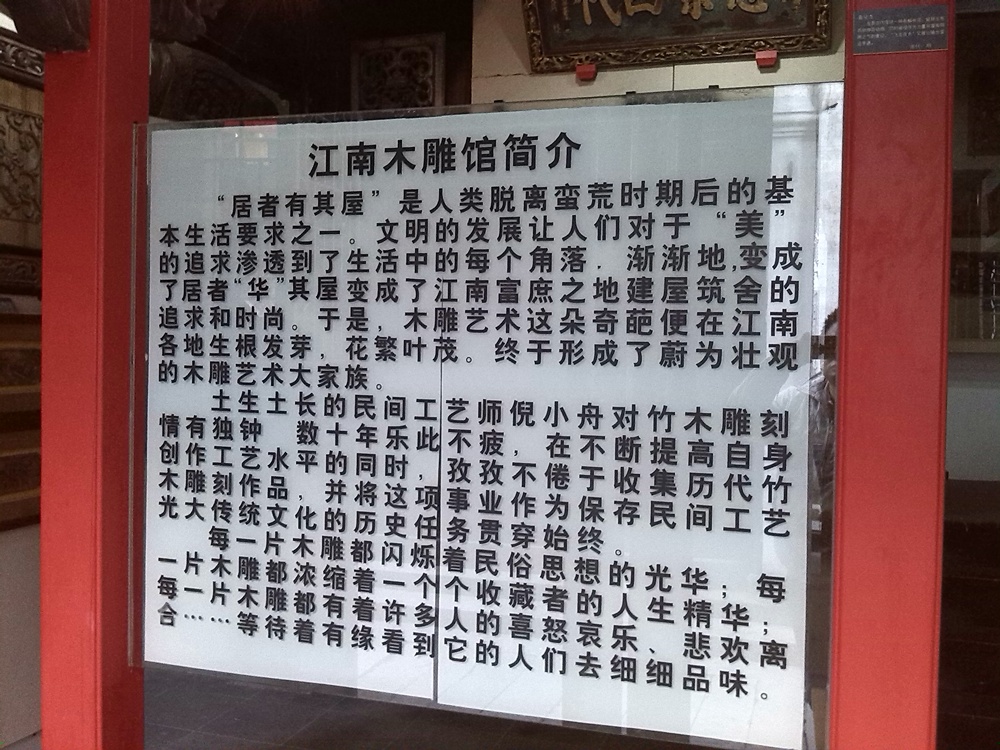 江南木雕馆简介
“居者有其屋”是人类脱离蛮荒时期后的基
本生活要求之一。文明的发展让人们对于“美”
的追求渗透到了生活中的每个角落．渐渐地,变成
了居者“华”其屋变成了江南富庶之地建屋筑舍的
追求和时尚。于是，木雕艺术这朵奇葩便在江南
各地生根发芽，花繁叶茂。终于形成了蔚为壮观
的木雕艺术大家族。
土生土长的民间工艺师倪小舟对竹木雕刻
情有独钟 数十年乐此不疲，在不断提高自身
创作工艺水平的同时，孜孜不倦于收集历代竹
木雕刻作品，并将这项事业作为保存民间工艺
光大传统文化的历史任务贯穿始终。
每一片木雕都闪烁着民俗思想的光华；每
一片木雕浓缩着一个个收藏者的人生精华；
每一片木雕都有着许多人的喜怒哀乐、悲欢离
合……等待着有缘人看到它们去细细品味。